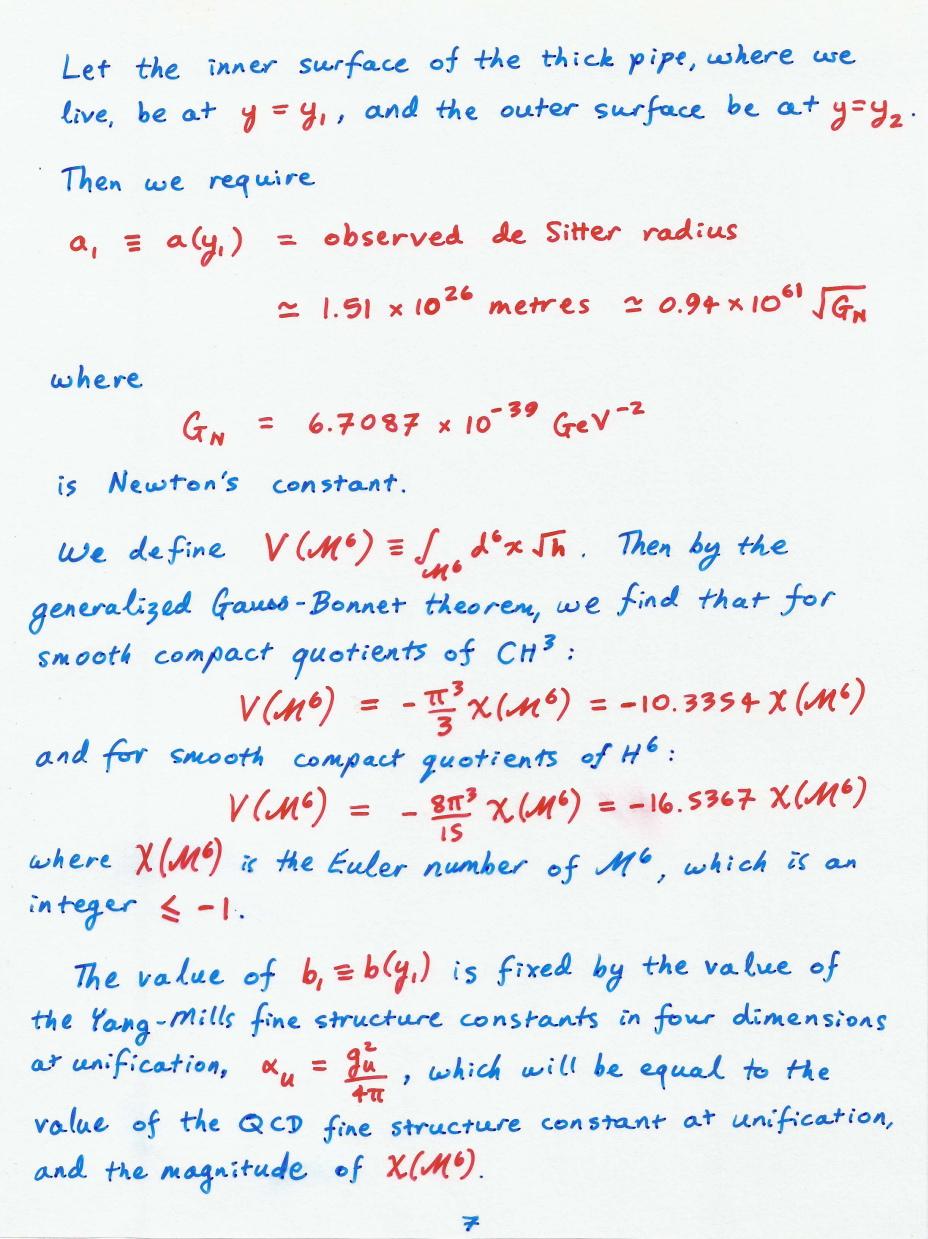 Let the inner surface of the thick pipe, where we
live, be at y = y₁, and the outer surface be at y=y₂.
Then we require
a₁ ≡ a(y₁) = observed de Sitter radius
≃ 1.51 × 10²⁶ metres ≃ 0.94 × 10⁶¹ √G_N
where
G_N = 6.7087 × 10⁻³⁹ GeV⁻²
is Newton's constant.
We define V(M⁶) ≡ ∫_M⁶ d⁶x √h. Then by the
generalized Gauss-Bonnet theorem, we find that for
smooth compact quotients of CH³:
V(M⁶) = -π³/3 χ(M⁶) = -10.3354 χ(M⁶)
and for smooth compact quotients of H⁶:
V(M⁶) = - 8π³/15 χ(M⁶) = -16.5367 χ(M⁶)
where χ(M⁶) is the Euler number of M⁶, which is an
integer ≤ -1.
The value of b₁ ≡ b(y₁) is fixed by the value of
the Yang-Mills fine structure constants in four dimensions
at unification, α_u = g_u²/4π, which will be equal to the
value of the QCD fine structure constant at unification,
and the magnitude of χ(M⁶).
7